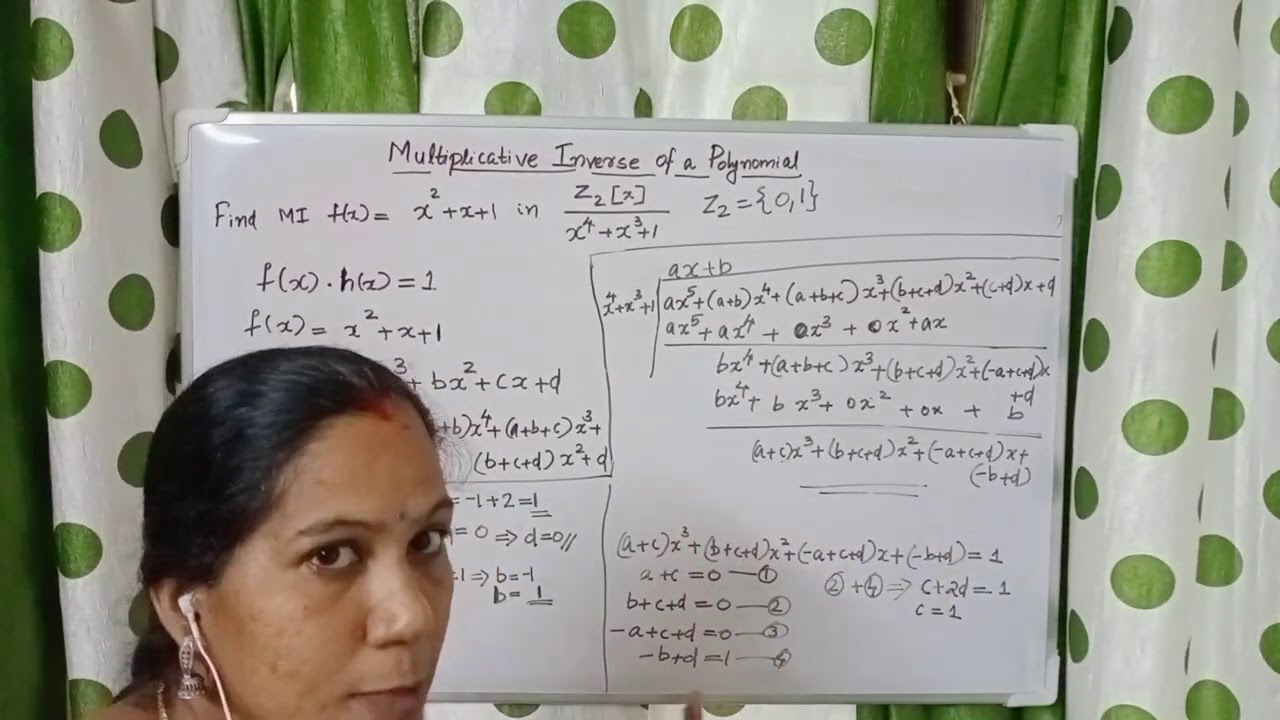 Multiplicative Inverse of a Polynomial
Find MI f(x) = x² + x + 1 in Z₂[x] / x⁴ + x³ + 1 Z₂ = {0, 1}
f(x) · h(x) = 1
f(x) = x² + x + 1
³ + bx² + cx + d
+b)x⁴ + (a+b+c)x³ +
(b+c+d)x² + d
= -1 + 2 = 1
= 0 ⇒ d = 0 //
1 ⇒ b = -1
b = 1
ax + b
x⁴ + x³ + 1 | ax⁵ + (a+b)x⁴ + (a+b+c)x³ + (b+c+d)x² + (c+d)x + d
ax⁵ + ax⁴ + 0x³ + 0x² + ax
bx⁴ + (a+b+c)x³ + (b+c+d)x² + (-a+c+d)x
+d
bx⁴ + bx³ + 0x² + 0x + b
(a+c)x³ + (b+c+d)x² + (-a+c+d)x +
(-b+d)
(a+c)x³ + (b+c+d)x² + (-a+c+d)x + (-b+d) = 1
a + c = 0 — ①
b + c + d = 0 — ②
-a + c + d = 0 — ③
-b + d = 1 — ④
② + ④ ⇒ c + 2d = 1
c = 1